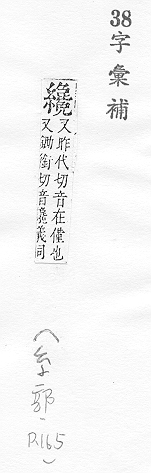 38字彙補
纔
又昨代切音在僅也
又鋤銜切音義同
(糸部,
P.165)